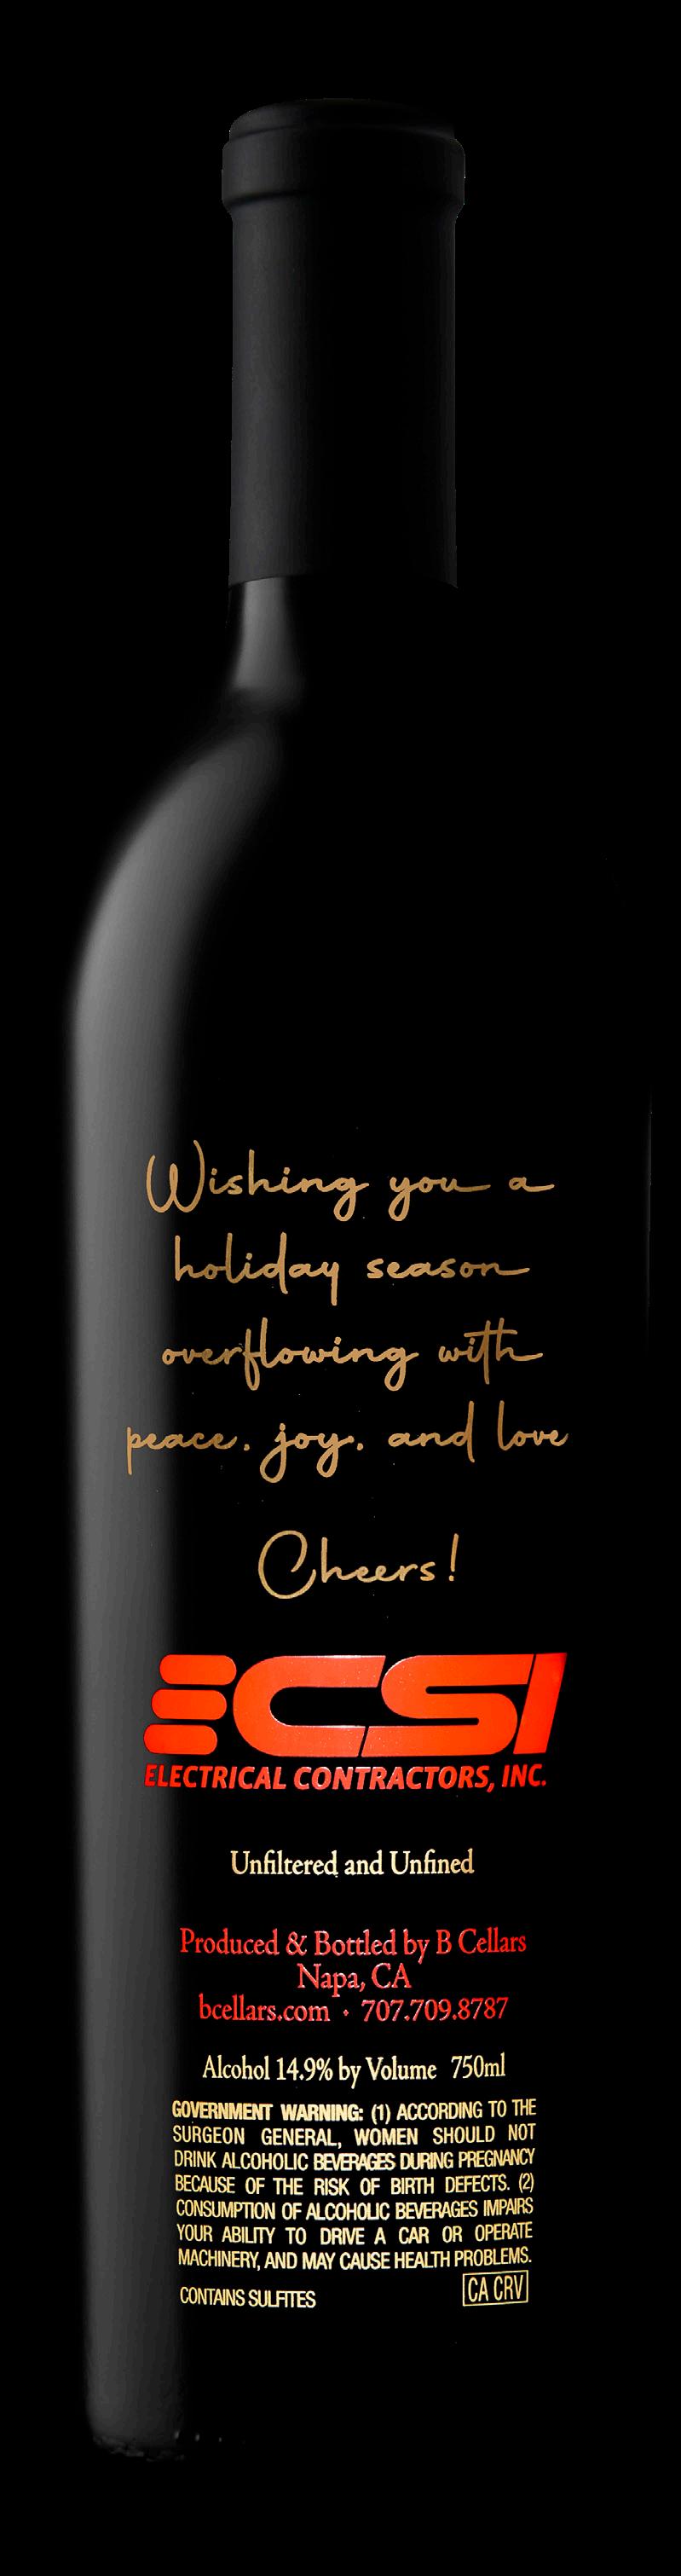 Wishing you a
holiday season
overflowing with
peace, joy, and love
Cheers!
ECSI
ELECTRICAL CONTRACTORS, INC.
Unfiltered and Unfined
Produced & Bottled by B Cellars
Napa, CA
bcellars.com · 707.709.8787
Alcohol 14.9% by Volume 750ml
GOVERNMENT WARNING: (1) ACCORDING TO THE
SURGEON GENERAL, WOMEN SHOULD NOT
DRINK ALCOHOLIC BEVERAGES DURING PREGNANCY
BECAUSE OF THE RISK OF BIRTH DEFECTS. (2)
CONSUMPTION OF ALCOHOLIC BEVERAGES IMPAIRS
YOUR ABILITY TO DRIVE A CAR OR OPERATE
MACHINERY, AND MAY CAUSE HEALTH PROBLEMS.
CONTAINS SULFITES
CA CRV